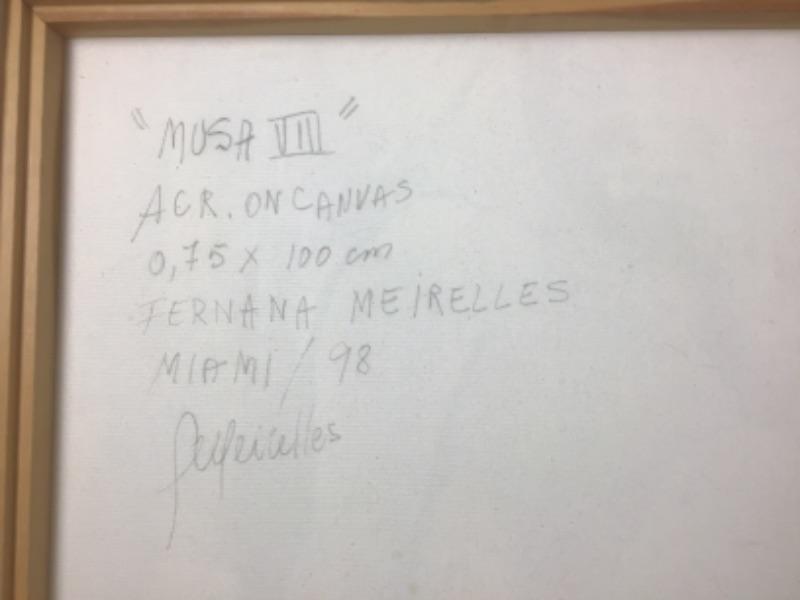 "MUSA VIII"
ACR. ON CANVAS
0,75 x 100 cm
FERNANA MEIRELLES
MIAMI / 98